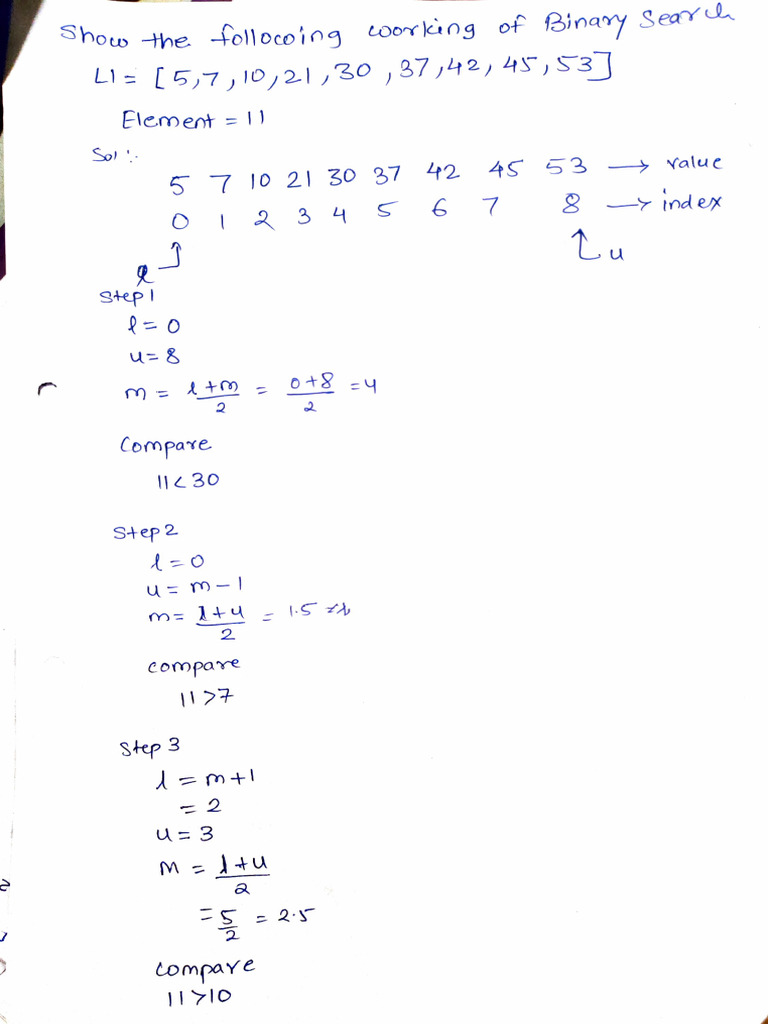 Show the following working of Binary Search
L1 = [5,7,10,21,30,37,42,45,53]
Element = 11
Sol:
5 7 10 21 30 37 42 45 53 → value
0 1 2 3 4 5 6 7 8 → index
l u
Step 1
l = 0
u = 8
m = l+m/2 = 0+8/2 = 4
Compare
11<30
Step 2
l = 0
u = m-1
m = l+u/2 = 1.5
compare
11>7
Step 3
l = m+1
= 2
u = 3
m = l+u/2
= 5/2 = 2.5
compare
11>10